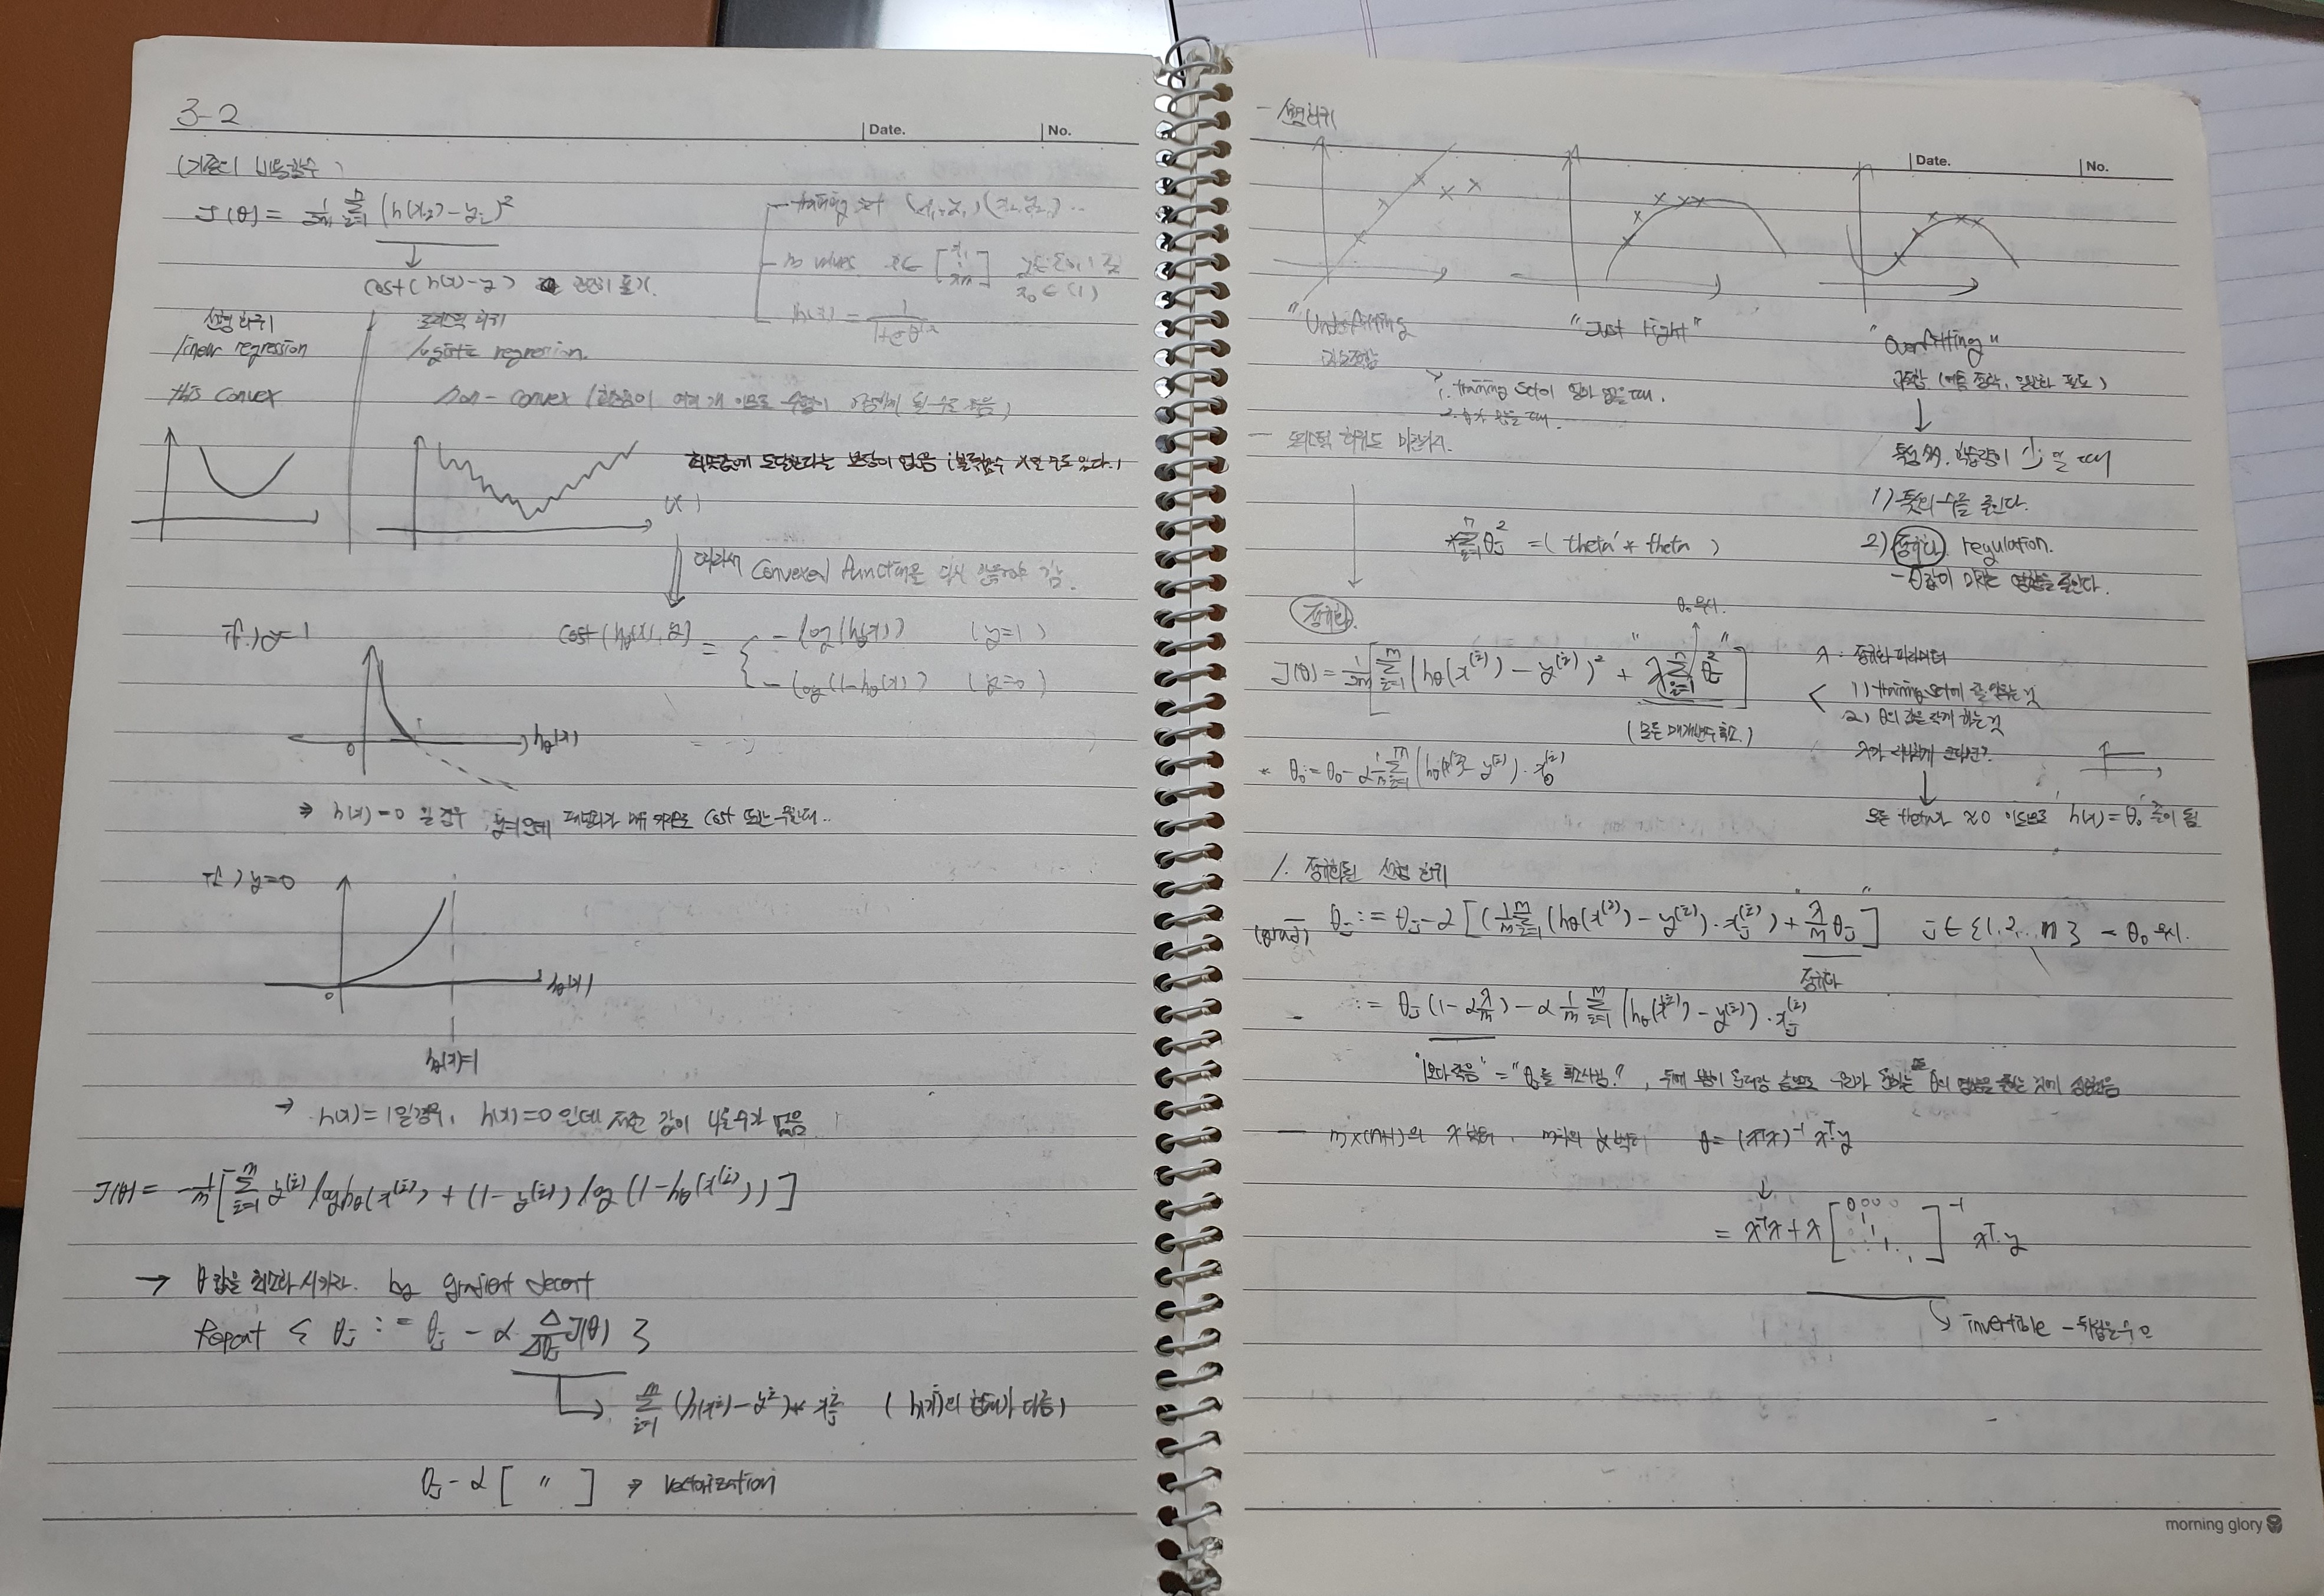 3-2
Date. No.
(기존의 비용함수)
J(θ) = 1/2m Σ i=1 m (h(xi) - yi)²
cost(h(x)-y)
training set (x1, y1)(x2, y2) ...
m values x∈ [x1 ⋮ xn] y∈{0,1}
x0∈(1)
h(x) =
선형회귀
linear regression
this convex
로지스틱 회귀
logistic regression.
non-convex (최솟값이 여러개 이므로 수렴이 안 될 수도 있음)
최솟값에 도달한다는 보장이 없음
따라서 Convexed function을 다시 만들어야 함.
if.) y=1
cost(hθ(x), y) = { -log(hθ(x)) (y=1)
-log(1-hθ(x)) (y=0)
0 1 hθ(x)
⇒ h(x)=0 일 경우, y=1인데 패널티가 매우 커지므로 cost
if) y=0
0 hθ(x)
hθ(x)=1
→ h(x)=1일 경우, h(x)=0 인데 값이 나올수가 없음
J(θ) = -1/m [ Σ i=1 m y(i) log hθ(x(i)) + (1-y(i)) log (1-hθ(x(i))) ]
→ θ값을 최소화 시키자. by gradient decent
Repeat { θj := θj - α · Δ/Δθj J(θ) }
Σ i=1 m (h(xi)-yi) * xji (h(x)의 형태가 다름)
θj - α [ " ] ⇒ vectorization
- 선형회귀
Date. No.
"Underfitting
과소적합
"Just right"
"Overfitting"
과적합
1. training set이 많이 없을 때.
- 로지스틱 회귀도 마찬가지.
특성 many, 학습량이 ↓ 일 때
1) 특성의 수를 줄인다.
2) 정규화 regulation.
- θ값이 가지는 영향을 줄인다.
Σ θj² = (theta' * theta)
정규화.
θ0 무시.
J(θ) = 1/2m [ Σ i=1 m (hθ(x(i)) - y(i))² + λ Σ i=1 n θj² ]
(모든 매개변수 축소.)
λ : 정규화 파라미터
1) training set에 잘 맞추는 것
2) θ의 값을 작게 하는 것
λ가 지나치게 크다면?
모든 theta가 ≈0 이므로 h(x) = θ0
* θ0 := θ0 - α 1/m Σ i=1 m (hθ(x(i)) - y(i)) · x0(i)
1. 정규화된 선형 회귀
θj := θj - α [ (1/m Σ i=1 m (hθ(x(i)) - y(i)) · xj(i)) + λ/m θj ] j∈{1,2,...n} - θ0 무시.
정규화
:= θj (1-α λ/m) - α 1/m Σ i=1 m (hθ(x(i)) - y(i)) · xj(i)
"1보다 작음" = "θj를 축소시킴."
- m×(n+1)의 X 벡터, m차의 y 벡터 θ = (XᵀX)⁻¹ Xᵀy
↓
= XᵀX + λ [ 0 0 0 0 1 1 1 ]⁻¹ Xᵀ·y
invertible - 뒤집을 수 o
morning glory